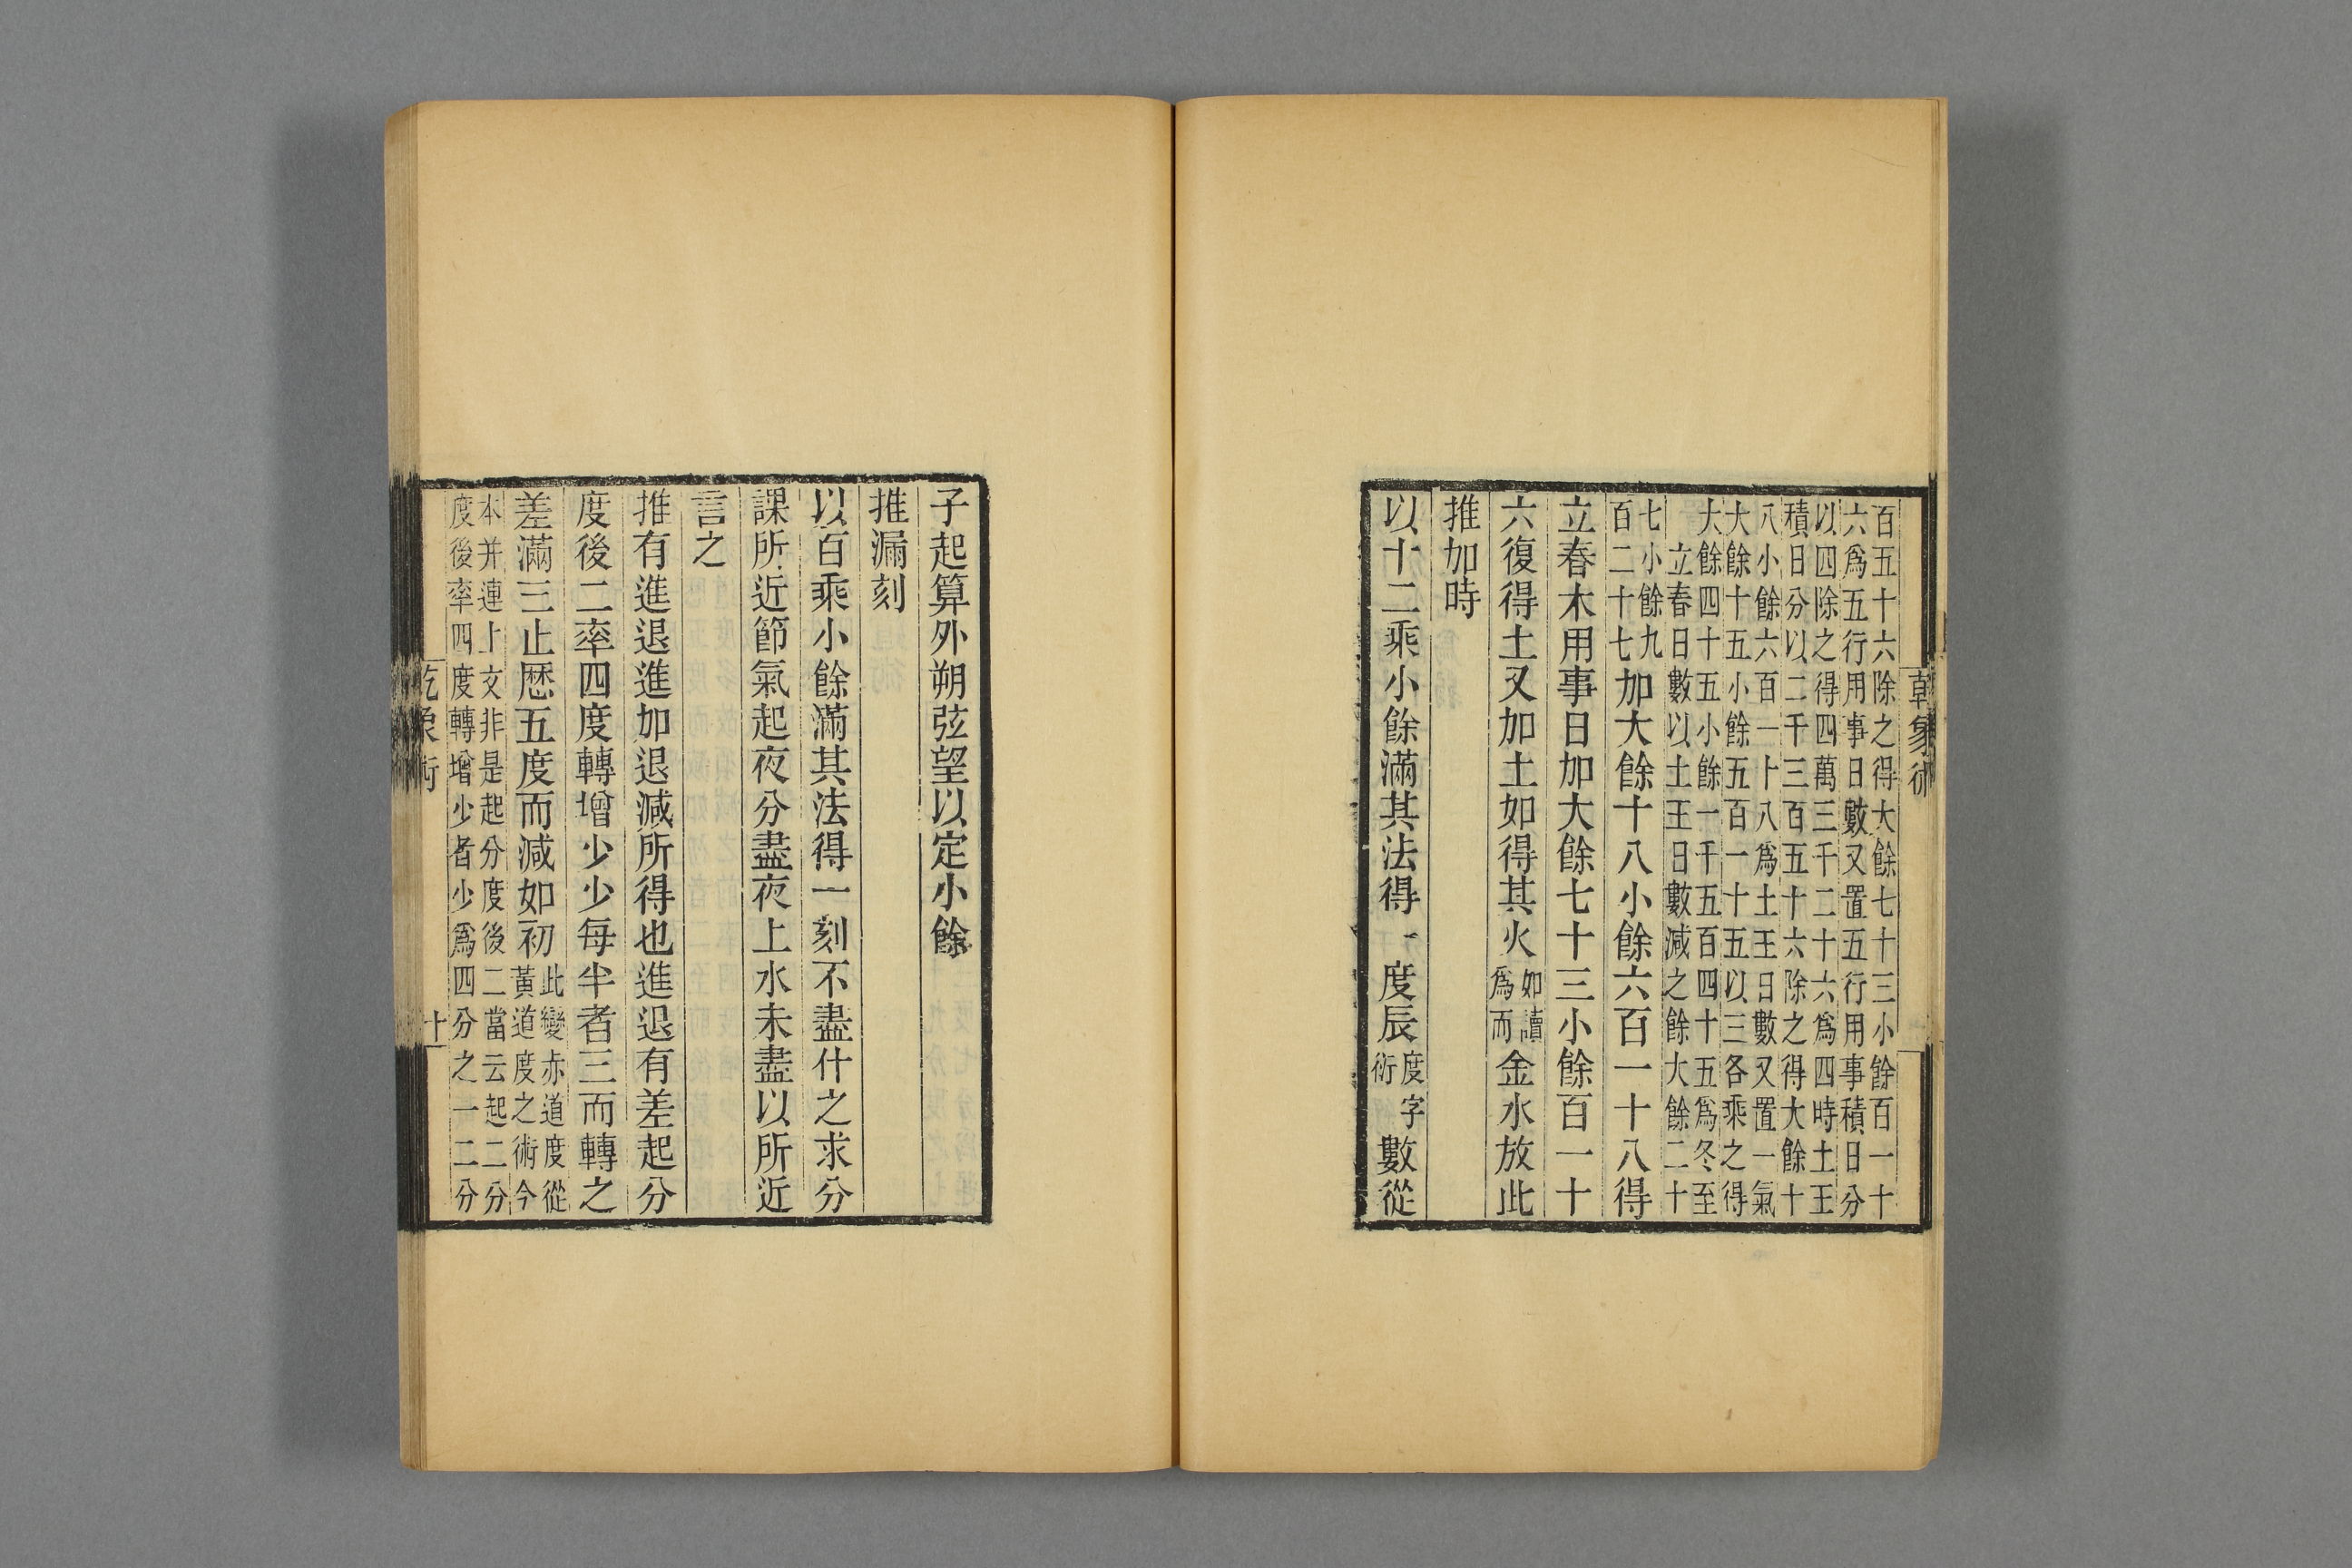 乾象術
百五十六除之得大餘七十三小餘百一十
六爲五行用事日數又置五行用事積日分
以四除之得四萬三千二十六爲四時土王
積日分以二千三百五十六除之得大餘十
八小餘六百一十八爲土王日數又置一氣
大餘十五小餘五百一十五以三各乘之得
大餘四十五小餘一千五百四十五爲冬至
立春日數以土王日數減之餘大餘二十
七小餘九百二十七加大餘十八小餘六百一十八得
立春木用事日加大餘七十三小餘百一十
六復得土又加土如得其火如讀爲而金水放此
推加時
以十二乘小餘滿其法得一度辰度字術數從
子起算外朔弦望以定小餘
推漏刻
以百乘小餘滿其法得一刻不盡什之求分
課所近節氣起夜分盡夜上水未盡以所近
言之
推有進退進加退減所得也進退有差起分
度後二率四度轉增少少每半者三而轉之
差滿三止厯五度而減如初此變赤道度從黃道度之術今
本并連上文非是起分度後二當云起二分
度後率四度轉增少者少爲四分之一二分
乾象術
十